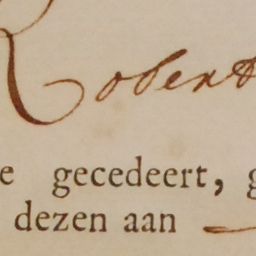 Robert
e gecedeert, g
dezen aan